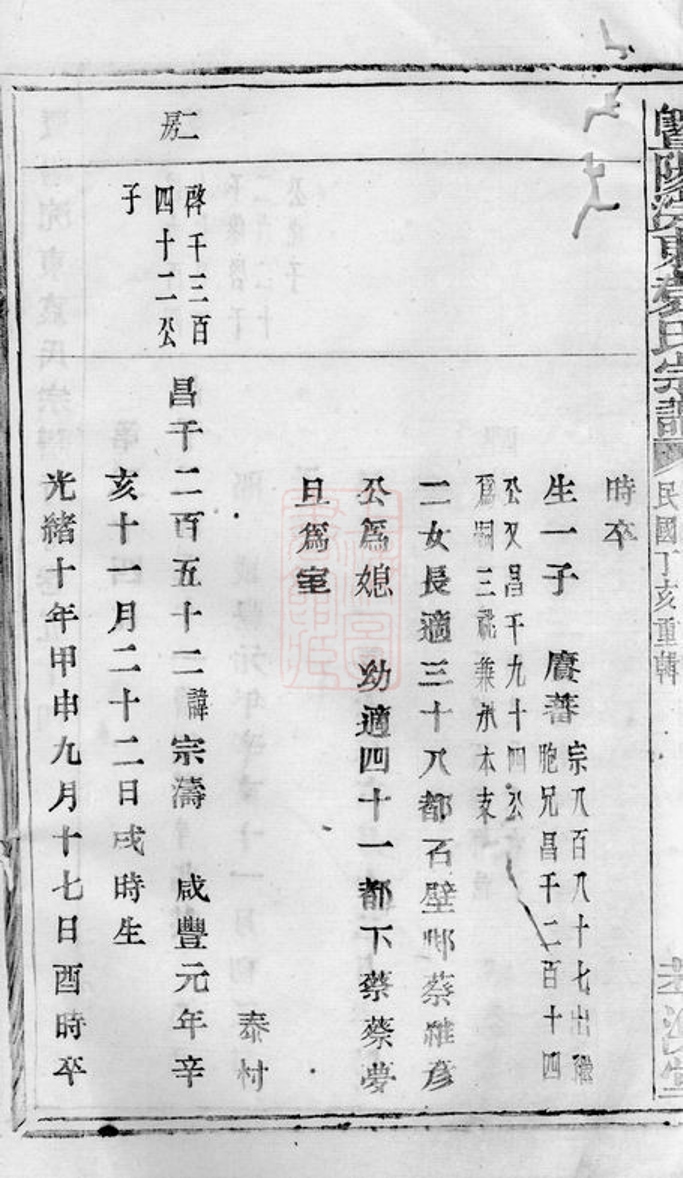 暨陽浣東袁氏宗譜
民國丁亥重輯
時卒
生一子 賡蕃
宗八百八十七出繼
胞兄昌千二百十四
公又昌千九十四公
爲嗣三祧兼承本支
二女長適三十八都石壁邨蔡維彥
公爲媳 幼適四十一都下蔡蔡夢
旦爲室
泰村
二房
啓千三百
四十二公
子
昌千二百五十二諱宗濤 咸豐元年辛
亥十一月二十二日戌時生
光緒十年甲申九月十七日酉時卒